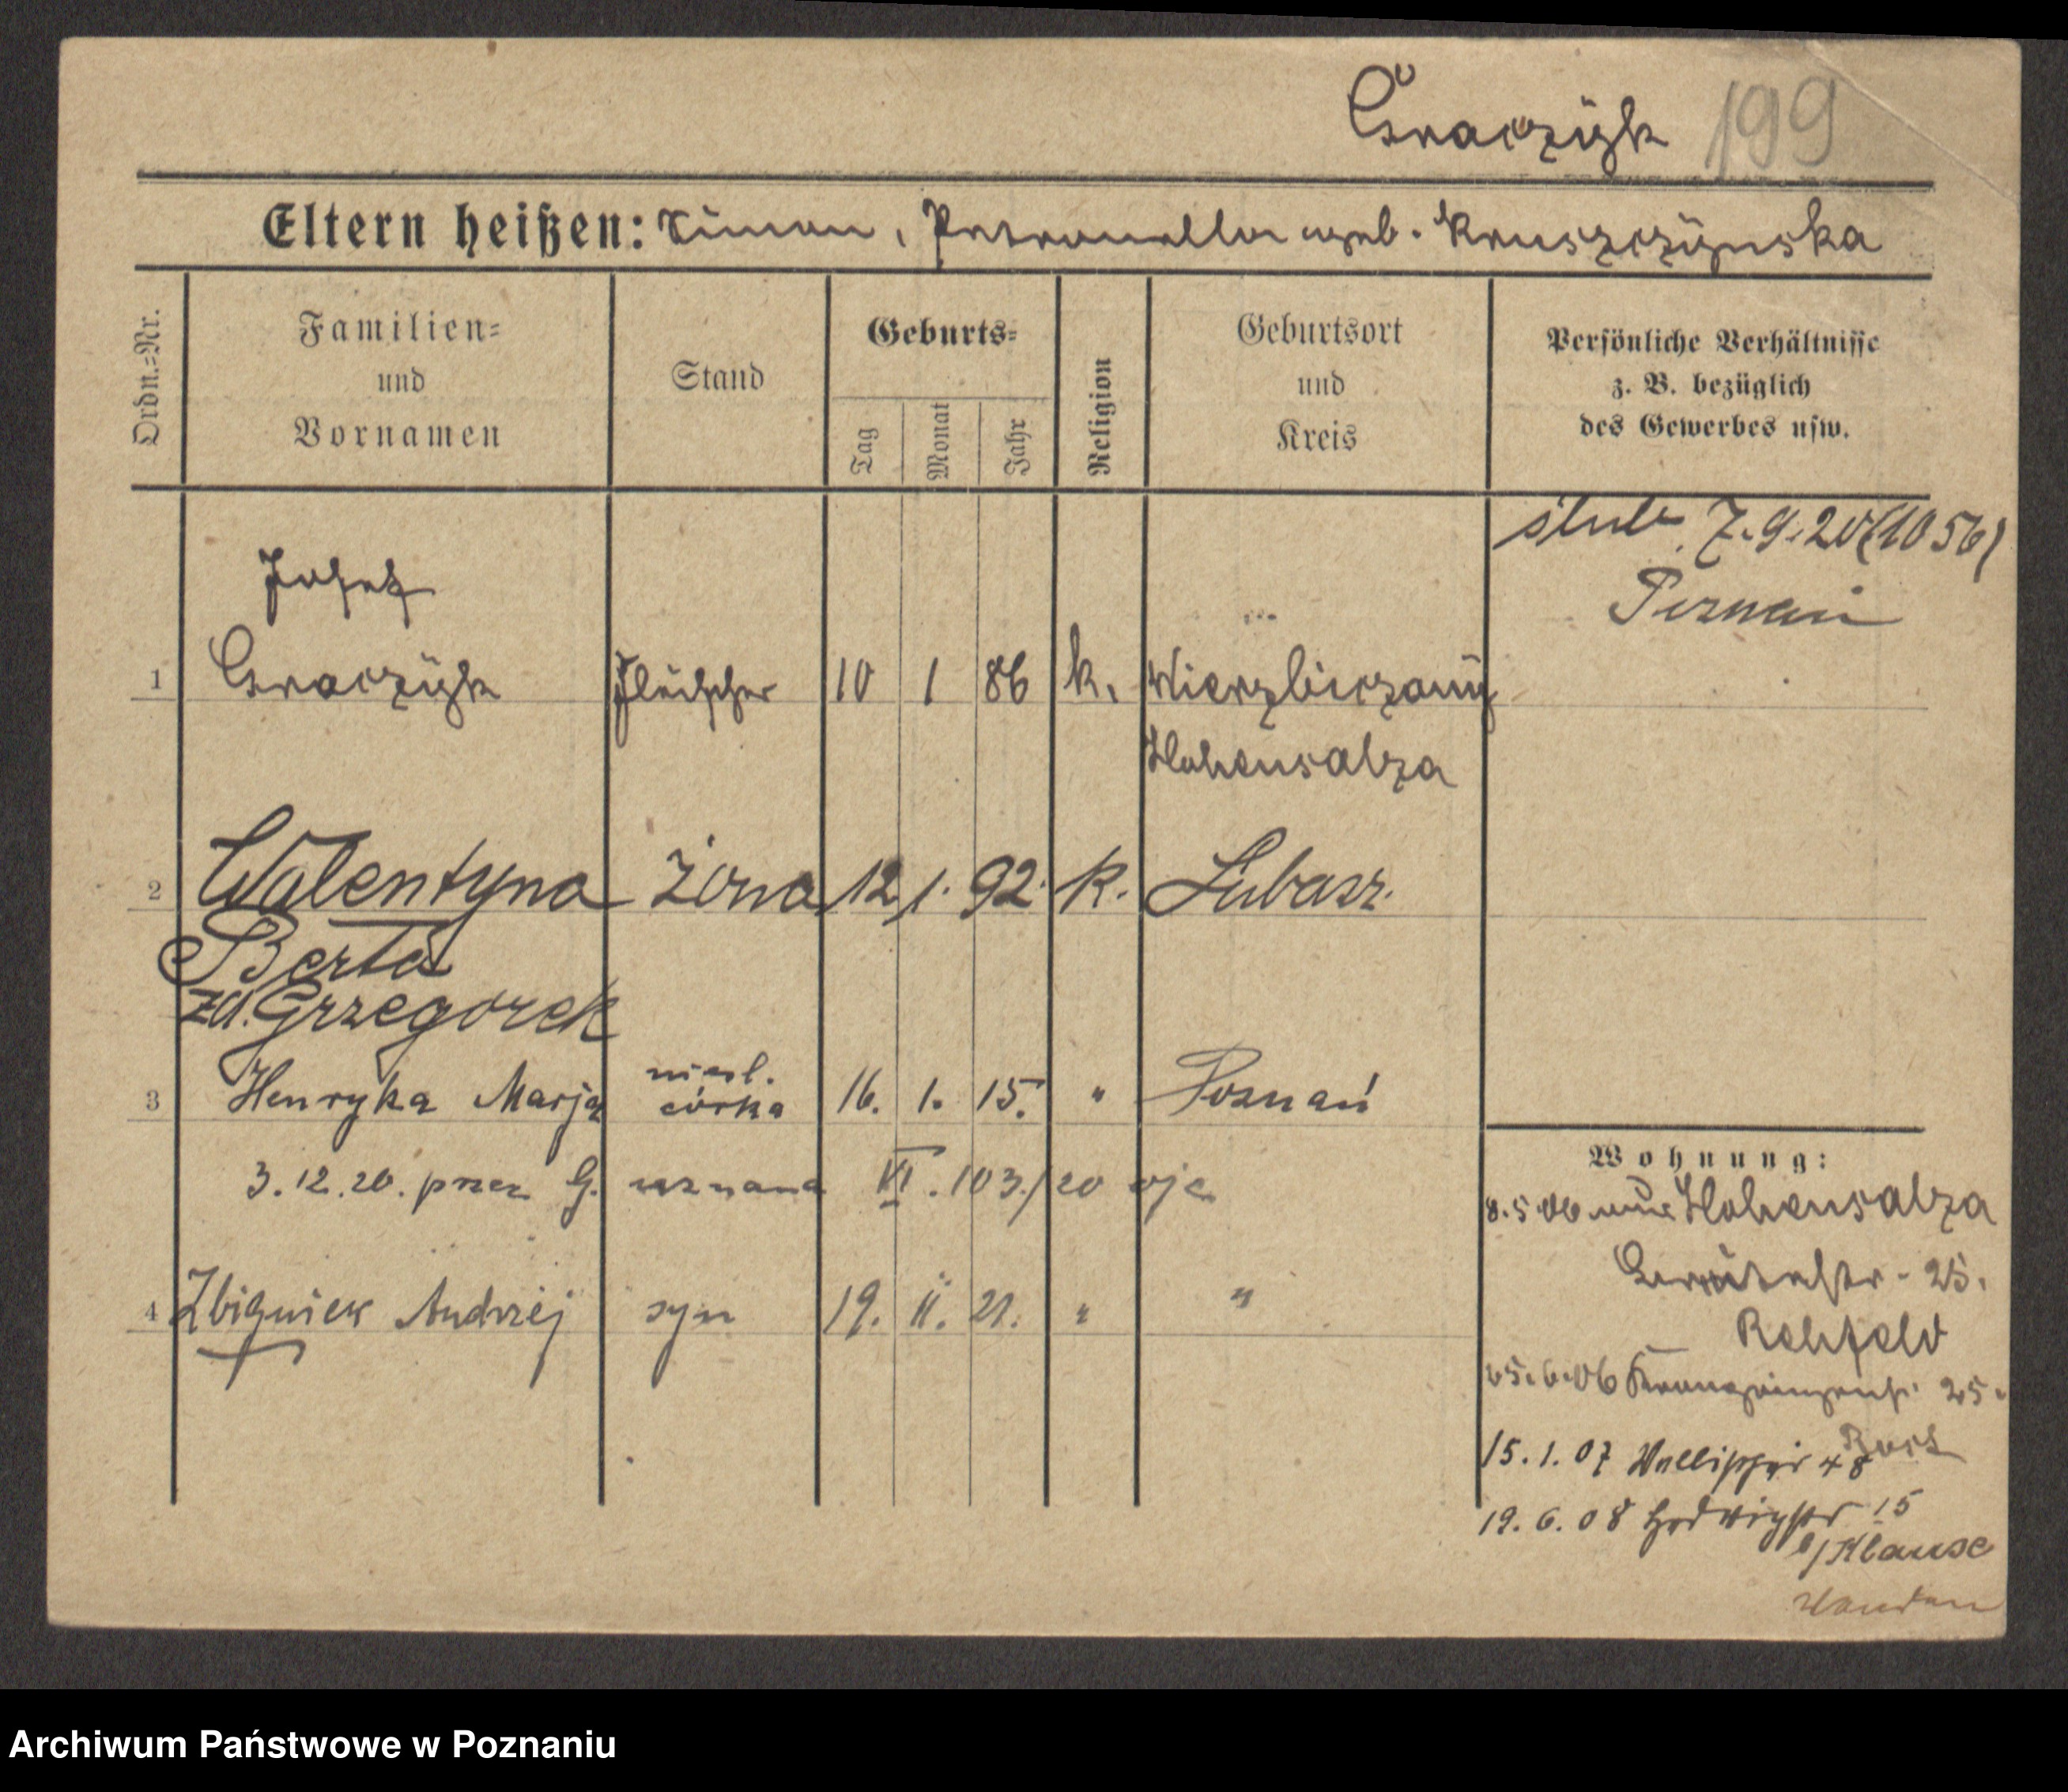 Graczyk 199
Eltern heißen: Simon, Petronella geb. Kruszczynska
Ordn.=Nr.
Familien=
und
Vornamen
Stand
Geburts=
Tag
Monat
Jahr
Religion
Geburtsort
und
Kreis
Persönliche Verhältnisse
z. B. bezüglich
des Gewerbes usw.
ślub 7.9.20 (1056)
Poznań
Josef
1 Graczyk Fleischer 10 1 86 k. Wierzbiczany
Hohensalza
2 Walentyna żona 12 1. 92. k. Lubasz.
Berta
zd. Grzegorek
3 Henryka Marja nieśl. córka 16. 1. 15. " Poznań
3.12.20. przez G. uznana VI. 103/20
4 Zbigniew Andrzej syn 19. 11. 21. " "
Wohnung:
8.5.06 Hohensalza
25.
Rehfeld
25.6.06 Kronprinzenst. 25.
15.1.07 Wallischei 48
19.6.08 Hedwigstr 15
b/ Klause
Archiwum Państwowe w Poznaniu